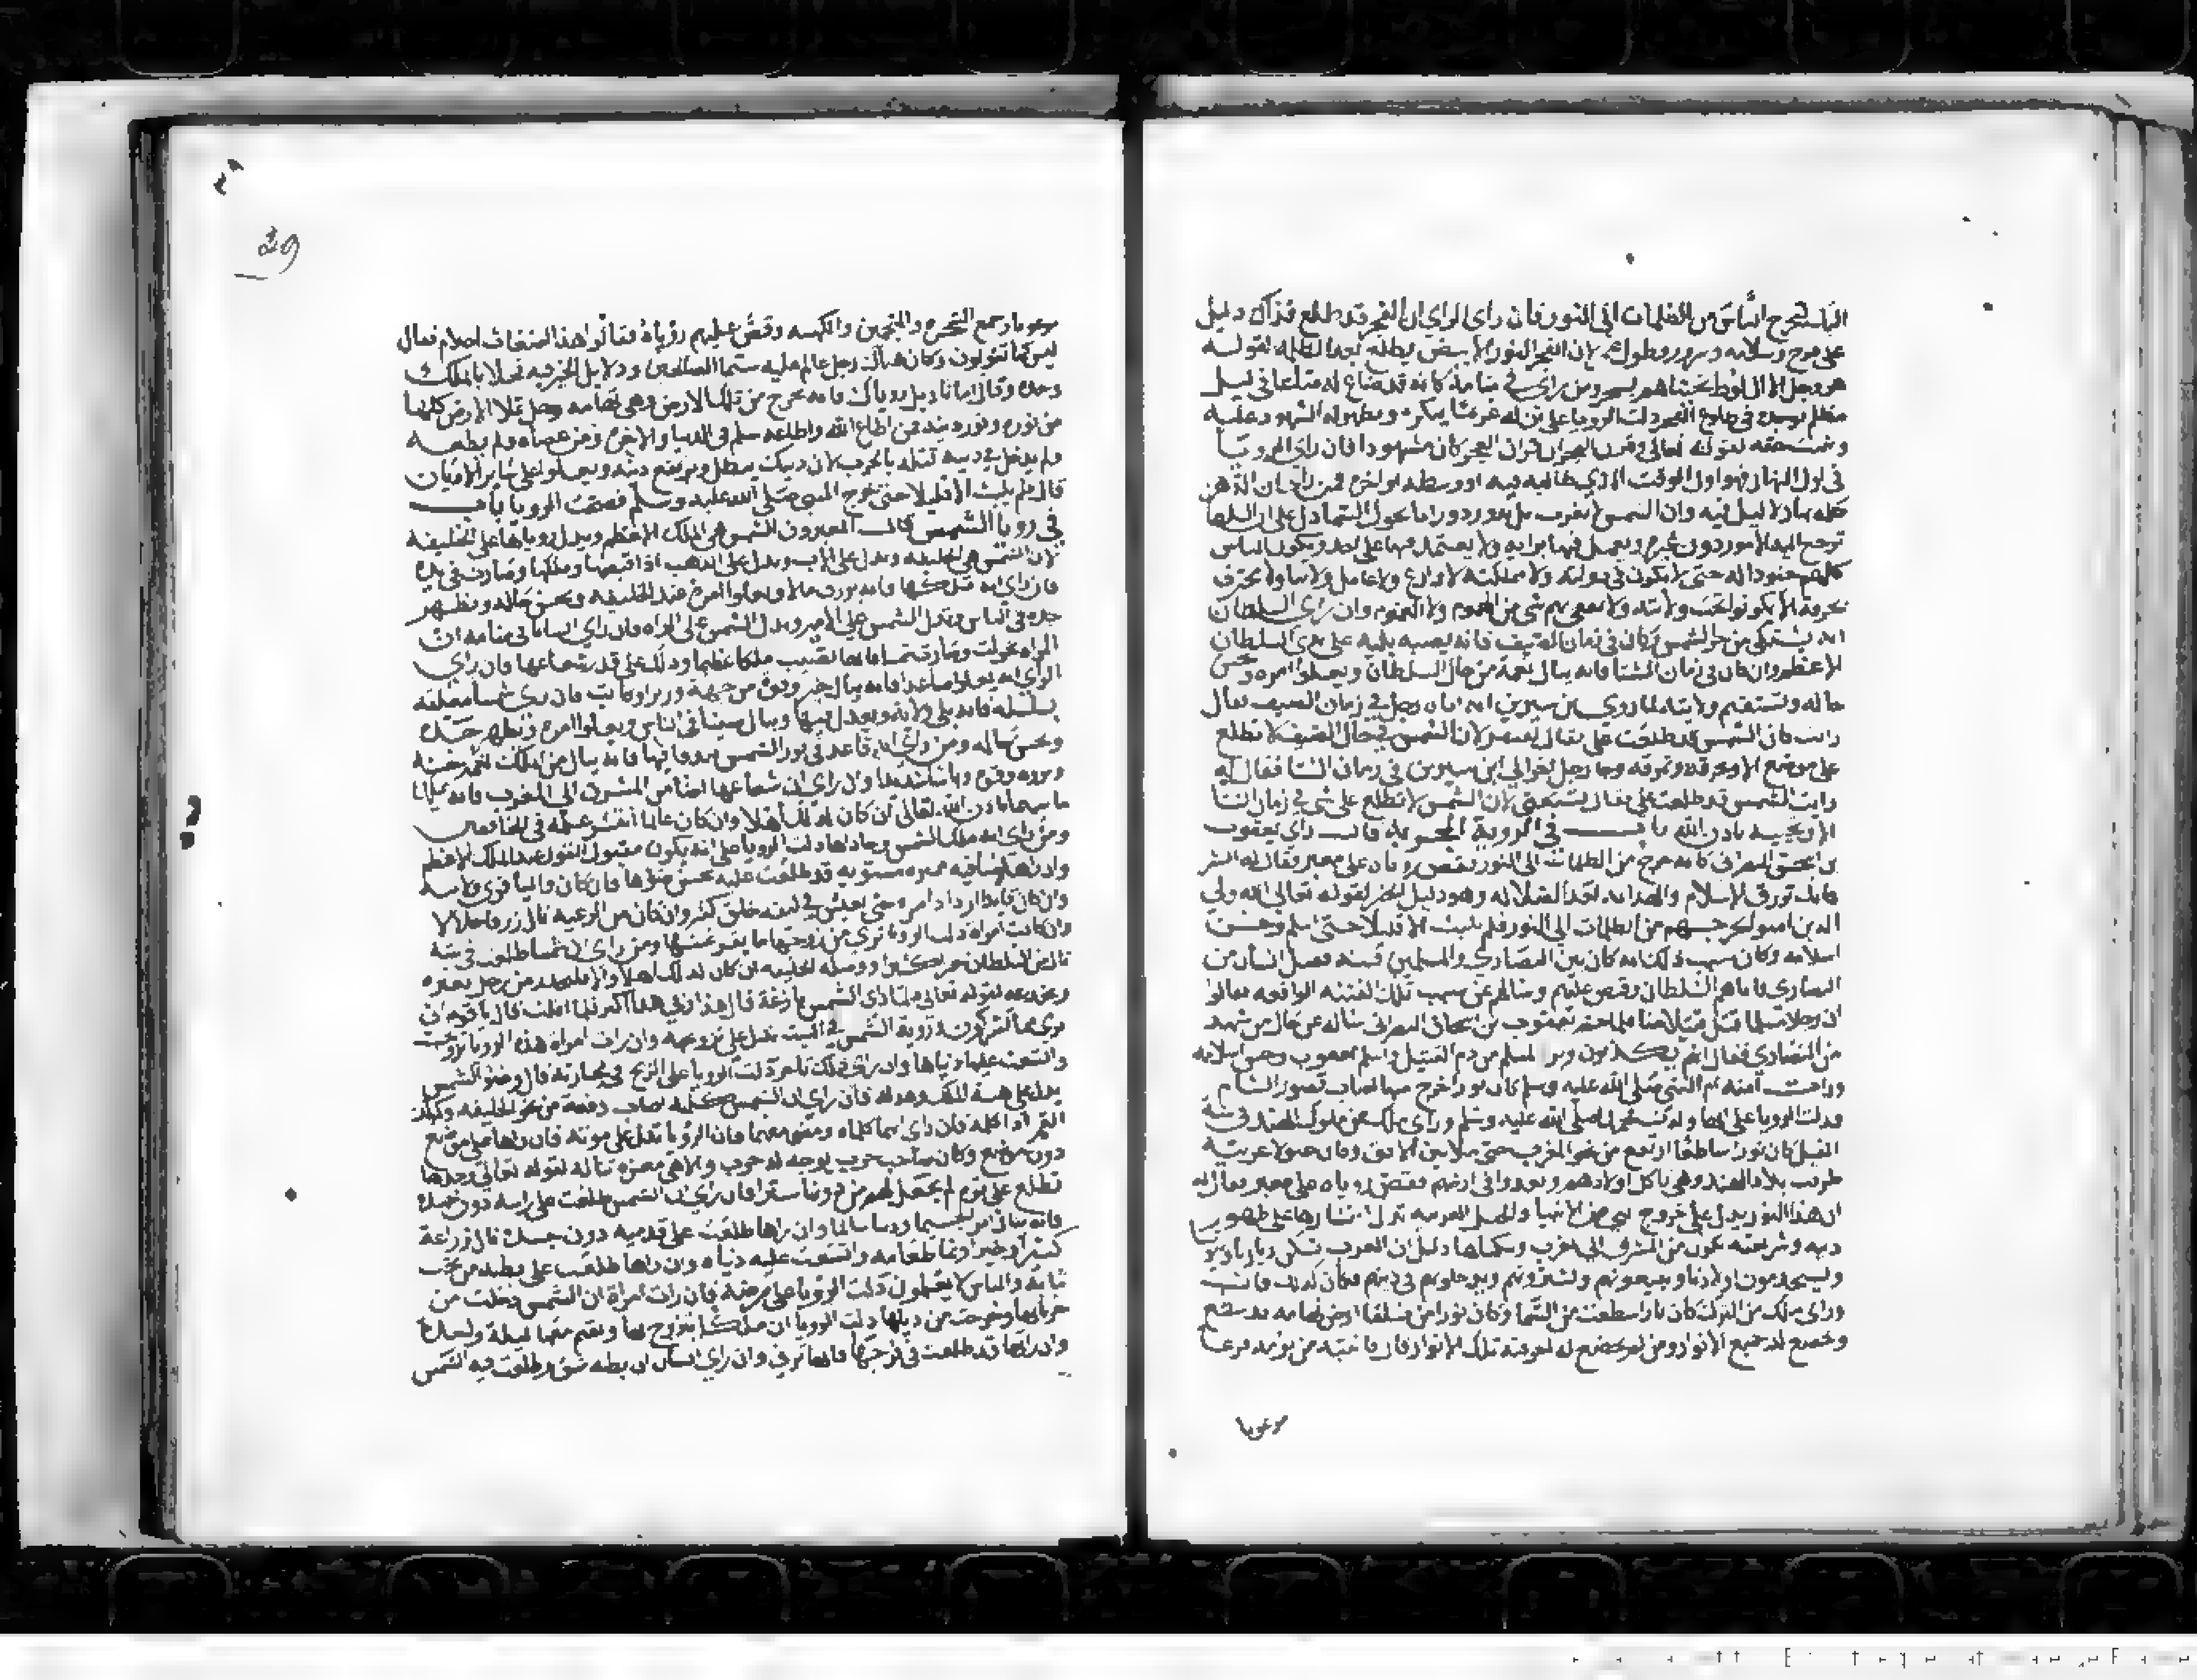 اليك لتخرج الناس من الظلمات الى النور فان راى الراى ان الفجر قد طلع فذاك دليل
على فرح وسلامه وسرور وطول لان الفجر النور الابيض يطلع بعد الظلمه لقوله
عز وجل الا ال لوط نجيناهم بسحر ومن راى في منامه كانه قد ضاع له متاعا في ليل
مظلم فوجده في طلوع الفجر دلت الرويا على ان له غريما ينكره ويظهر له الشهود عليه
ويثبت حقه لقوله تعالى وقران الفجر ان قران الفجر كان مشهودا فان راى الرويا
في اول النهار فهو اول الوقت الذي طالبه فيه او وسطه او اخره فمن راى ان الدهر
كله نهار لا ليل فيه وان الشمس لا تغرب بل تدور دورانا حول السما دل على ان السلطان
ترجع اليه الامور دون غيره ويعمل فيها برايه ولا يعتمد فيها على احد ويكون الناس
كلهم جنودا له حتى لا يكون في دولته ولا مملكته لا زارع ولا عامل ولا بنا ولا محترف
بحرفة الا يكونوا تحت ولايته ولا يصيبهم شى من الهموم ولا الغموم وان راى السلطان
انه يشتكى من حر الشمس وكان في زمان الصيف فانه يصيبه بليه على يدى السلطان
الاعظم وان كان في زمان الشتا فانه ينال نعمة من مال السلطان ويعلوا امره وحسن
حاله وتستقيم ولايته لما روي عن ابن سيرين انه اتاه رجل في زمان الصيف فقال
رايت كان الشمس قد طلعت على فقال لان الشمس في حال الصيف لا تطلع
على موضع الا وحرقته ومزقه وجا رجل اخر الى ابن سيرين في زمان الشتا فقال له
رايت الشمس قد طلعت على فقال تستغنى لان الشمس لا تطلع على شى في زمان الشتا
الا وتحييه باذن الله باب في الروية قال راى يعقوب
بن اسحق النصرانى كانه خرج من الظلمات الى النور فقص روياه على معبر فقال له ابشر
فانك ترزق الاسلام والهدايه بعد الضلاله وهو دليل الخير لقوله تعالى الله ولي
الذين امنوا يخرجهم من الظلمات الى النور فلم يلبث الا قليلا حتى اسلم وحسن
اسلامه وكان سبب ذلك انه كان بين النصارى والمسلمين فتنه فصل انسان من
النصارى فاتاهم السلطان وقبض عليهم وسالهم عن سبب تلك الفتنه الواقعه فقالوا
ان رجلا مسلما قتل قتيلا منا فلما حضر يعقوب بن اسحاق النصرانى ساله عن حال من شهد
من النصارى فقال انهم يكذبون وبرا المسلم من دم القتيل واسلم يعقوب وحسن اسلامه
وراءت امنه ام النبي صلى الله عليه وسلم كان نورا خرج منها اضات قصور الشام
ودلت الرويا على انها ولدت محمدا صلى الله عليه وسلم وراى ملك من ملوك الهند في سنة
الفيل كان نورا ساطعا ارتفع من نحو المغرب حتى ملا بين الافق وكان خيولا عربية
طرقت بلاد الهند وهي تاكل اولادهم ويعدوا في ارضهم فقص روياه على معبر فقال له
ان هذا النور يدل على خروج نبي من الانبيا والخيل العربيه تدل انتشارها على ظهور
دينه وشريعته تكون من المشرق الى المغرب وسكناها دليل ان العرب تسكن ديارنا وبلادنا
ويستخدمون اولادنا ويبيعونهم ويشترونهم ويدخلونهم في دينهم فكان كذلك
وراى ملك من الترك كان نارا سطعت من السما وكان نورا من تهامه قد سطع
وخضع له جميع الانوار ومن لم يخضع له احرقته تلك الانوار قال فانتبه من نومه مرعوبا
مرعوبا
٣٩
39
مرعوبا وجمع السحره والمنجمين والكهنه وقص عليهم روياه فقالوا هذا اضغاث احلام فقال
ليس كما تقولون وكان هناك رجل عالم عليه سيما الصالحين ودلايل الخير فيه فخلا بالملك
وحده وقال له اما تاويل روياك فانه يخرج من تلك الارض وهي تهامه رجل يملا الارض كلها
من نوره ونوره دينه فمن اطاع الله واطاعه سلم في الدنيا والاخره ومن عصاه ولم يطعه
ولم يدخل في دينه قتله بالحرب لان دينك يبطل ويرتفع دينه ويعلوا على ساير الاديان
قال فلم يلبث الا قليلا حتى خرج النبي صلى الله عليه وسلم فصحت الرويا باب
في رويا الشمس قالت المعبرون الشمس هي الملك الاعظم ويدل روياها على الخليفه
لان الشمس هي الخليفه وتدل على الاب وتدل على الذهب اذا قبضها وملكها وصارت في يده
فان راى انه ملكها فانه يرزق مالا ويعلوا امره عند الخليفه ويحسن حاله ويظهر
جده في الناس وتدل الشمس على الامير وتدل الشمس على المراه فان راى انسانا في منامه ان
المراه تحولت وصارت شمسا فانها تصيب ملكا عظيما وذلك على قدر شعاعها فان راى
الراى انه يعلوا صاعدا فانه ينال خير وقوة من جهة وزير او كاتب فان راى شمسا معلقه
بسلسله فانه يلي ولايه ويعدل فيها وينال صيتا في الناس ويعلوا امره ويظهر جده
ويحسن حاله ومن راى انه قاعد في نور الشمس فانه ينال من الملك
وقوه وان راى ان شعاعها اضا من المشرق الى المغرب فانه يملك ما
بينهما باذن الله تعالى ان كان لذلك اهلا وان كان عالما انتشر علمه في الخافقين
ومن راى انه ملك الشمس وحازها دلت الرويا على انه يكون مقبول القول عند الملك الاعظم
وان راها صافيه منيره مستويه قد طلعت عليه بحسن ضوها فان كان واليا قوى ولايته
وان كان قايدا ازداد امره حتى يعيش في كنفه خلق كثير وان كان من الرعيه نال رزقا حلالا
وان كانت امراه دلت الرويا ترى من زوجها ما يقر عينها ومن راى ان شمسا طلعت في بيته
نال من السلطان خيرا كثيرا ووصله الخليفه ان كان لذلك اهلا والا فليحذر من رجل يعيره
لقوله تعالى فلما راى الشمس بازغة قال هذا ربي هذا اكبر فلما افلت قال يا قوم اني
برى مما تشركون وروية الشمس في البيت تدل على تزويجه وان رات امراه هذه الرويا تزوجت
واتسعت عليها دنياها وان راى ذلك تاجر دلت الرويا على الربح في تجارته قال وضو الشمس
يدل على هيبة الملك وعدله فان راى ان الشمس تكلمه اصاب رفعة من نحو الخليفه وكذلك
القمر اذا كلمه فان راى انهما كلماه ومضى معهما فان الرويا تدل على موته فان راها على موضع
دون موضع وكان صاحب حرب يوجه له حرب والا في معيزه تناله لقوله تعالى وجدها
تطلع على قوم لم نجعل لهم من دونها سترا فان راى ان الشمس طلعت على راسه دون جسده
فانه ينال امرا جسيما ودنيا سالما وان راها طلعت على قدميه دون جسده نال زراعة
كثيرا وخيرا ونما طعامه واتسعت عليه دنياه وان راها طلعت على بطنه من تحت
ثيابه والناس لا يعلمون دلت الرويا على برصه فان رات امراة ان الشمس دخلت من
جربانها وخرجت من ذيلها دلت الرويا ان ملكا يتزوج بها ويقيم معها ليلة واحدة
وان راتها قد طلعت في فرجها فانها تزني وان راى انسان ان بطنه شق وطلعت فيه الشمس